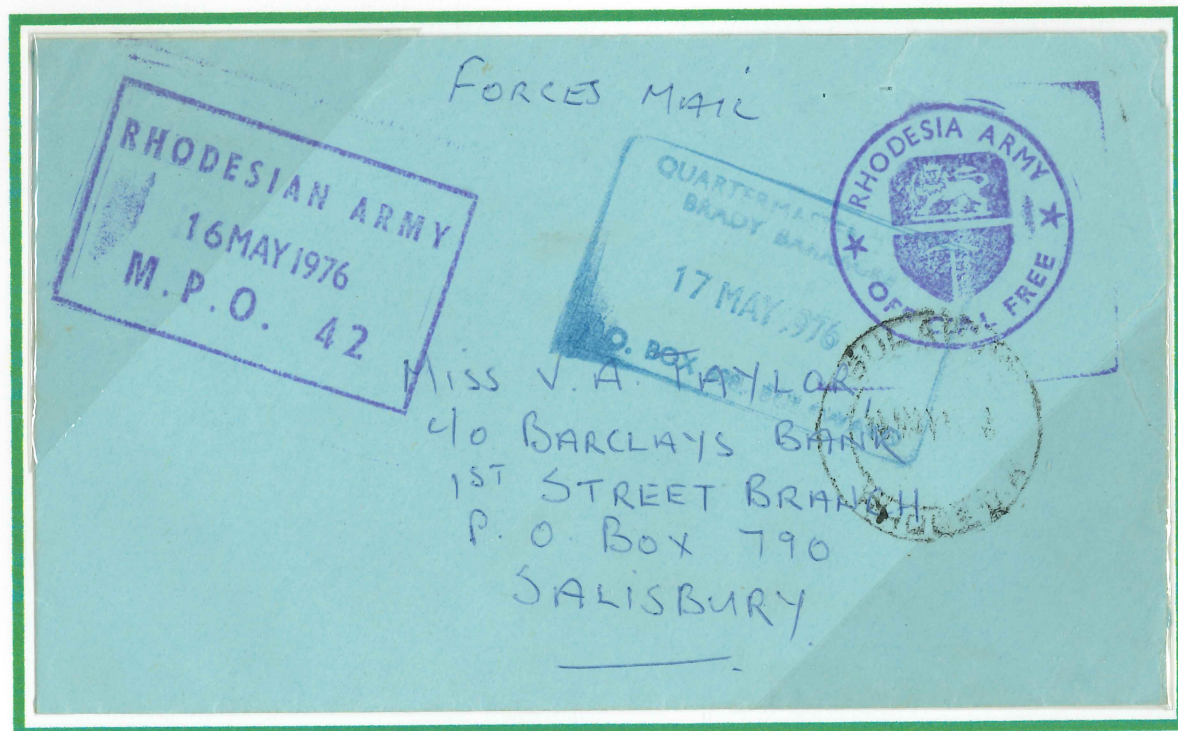 FORCES MAIL
RHODESIAN ARMY
16 MAY 1976
M.P.O. 42
QUARTERMASTER
BRADY BARRACKS
17 MAY 1976
P.O. BOX
RHODESIA ARMY
OFFICIAL FREE
MISS V. A. TAYLOR,
c/o BARCLAYS BANK
1ST STREET BRANCH
P. O. BOX 790
SALISBURY.